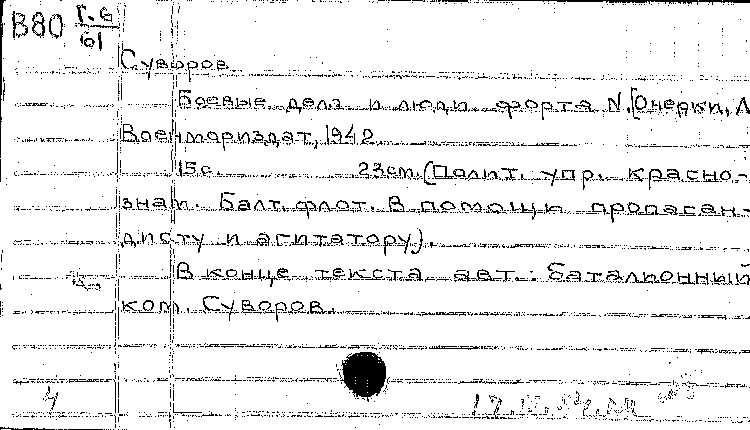 В80 Г.6
61
Суворов.
Боевые дела и люди форта N. [Очерки, Л
Военмориздат, 1942.
15с. 23см. (Полит. упр. Красно-
знам. Балт. флот. В помощь пропаган-
дисту и агитатору).
В конце текста авт.: Баталионный
ком. Суворов.
4